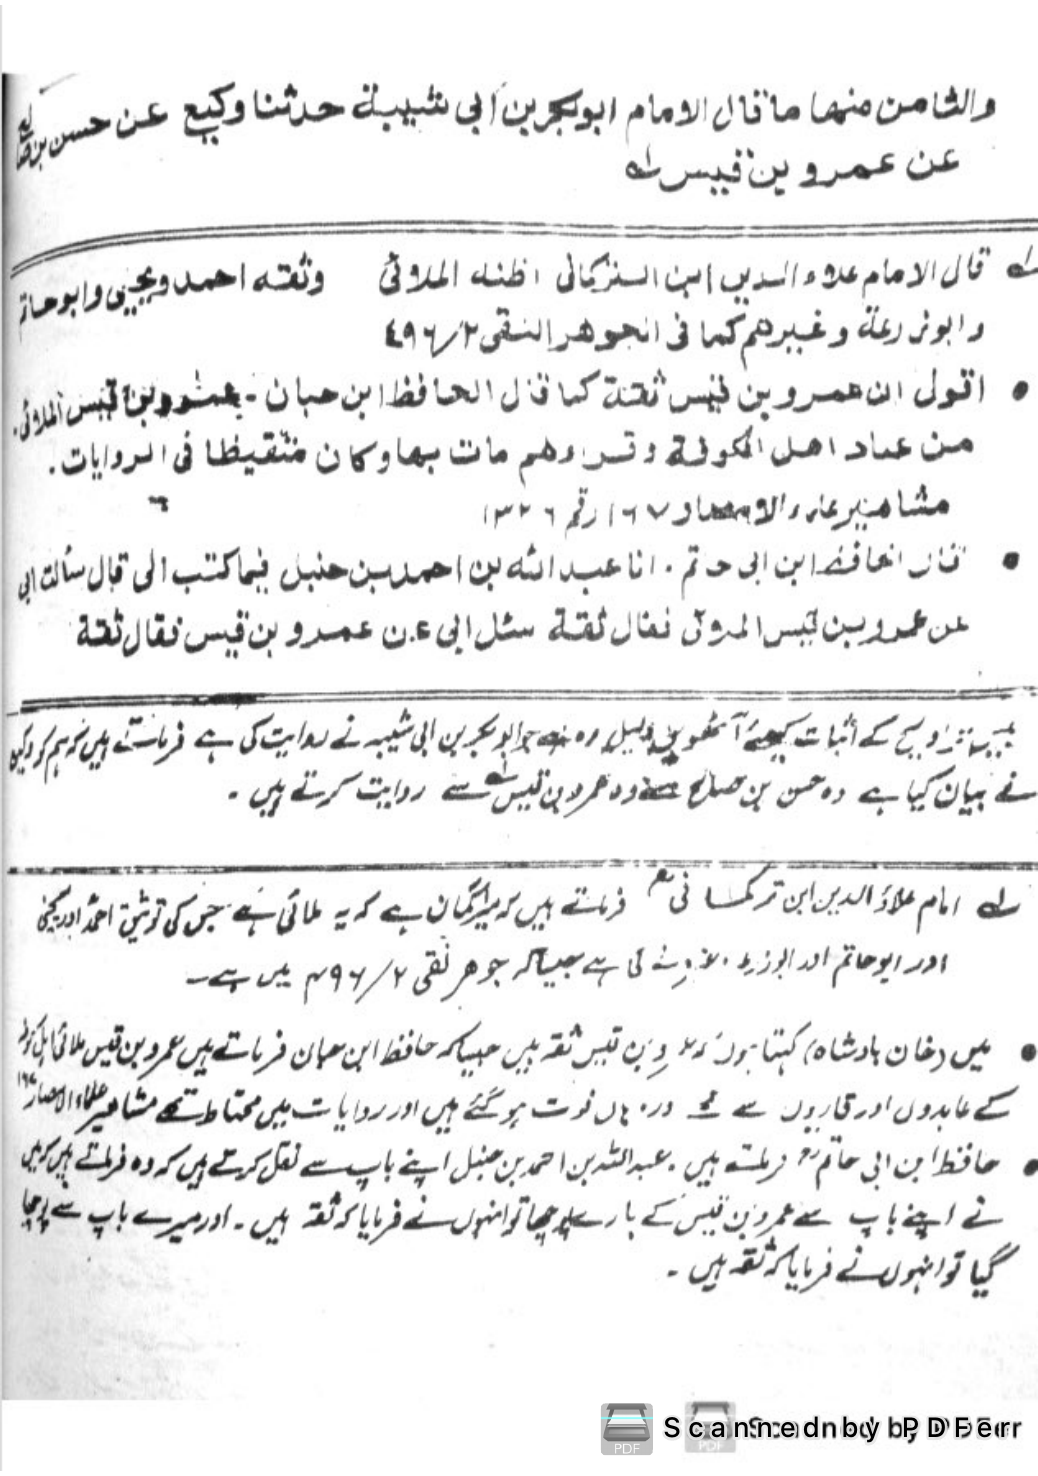 والثامن منها ما قال الامام ابوبكر بن أبي شيبة حدثنا وكيع عن حسن بن صالح
عن عمرو بن قيس له
له قال الامام علاء الدين ابن التركمانى اظنه الملائى وثقه احمد ويحيى وابوحاتم
وابوزرعة وغيرهم كما فى الجوهر النقى ٤٩٦/٢
• اقول ان عمرو بن قيس ثقة كما قال الحافظ ابن حبان - عمرو بن قيس الملائى
من عباد اهل الكوفة وقراءهم مات بها وكان متقيظا فى الروايات .
مشاهير علماء الامصار ١٦٧ رقم ١٣٢٦
• قال الحافظ ابن ابى حاتم . انا عبد الله بن احمد بن حنبل فيما كتب الى قال سألت ابى
عن عمرو بن قيس فقال ثقة سئل ابى عن عمرو بن قيس فقال ثقة
تراویح کے اثبات کیلئے آٹھویں دلیل وہ ہے جو ابوبکر بن ابی شیبہ نے روایت کی ہے فرماتے ہیں کہ ہم کو وکیع
نے بیان کیا ہے وہ حسن بن صالح سے وہ عمرو بن قیس لہ سے روایت کرتے ہیں ۔
لہ امام علاؤ الدین ابن ترکمانی فرماتے ہیں کہ میرا گمان ہے کہ یہ ملائی ہے جس کی توثیق احمد اور یحیی
اور ابوحاتم اور ابوزرعہ وغیرہ نے کی ہے جیسا کہ جوھر نقی ۴۹۶/۲ میں ہے۔
• میں (خان بادشاہ) کہتا ہوں کہ عمرو بن قیس ثقہ ہیں جیسا کہ حافظ ابن حبان فرماتے ہیں عمرو بن قیس ملائی اہل کوفہ
کے عابدوں اور قاریوں سے تھے اور وہاں فوت ہو گئے ہیں اور روایات میں محتاط تھے مشاھیر علماء الامصار ۱۶۷
• حافظ ابن ابی حاتم فرماتے ہیں ۔ عبداللہ بن احمد بن حنبل اپنے باپ سے نقل کرتے ہیں کہ وہ فرماتے ہیں کہ میں
نے اپنے باپ سے عمرو بن قیس کے بارے پوچھا تو انہوں نے فرمایا کہ ثقہ ہیں ۔ اور میرے باپ سے پوچھا
گیا تو انہوں نے فرمایا کہ ثقہ ہیں ۔